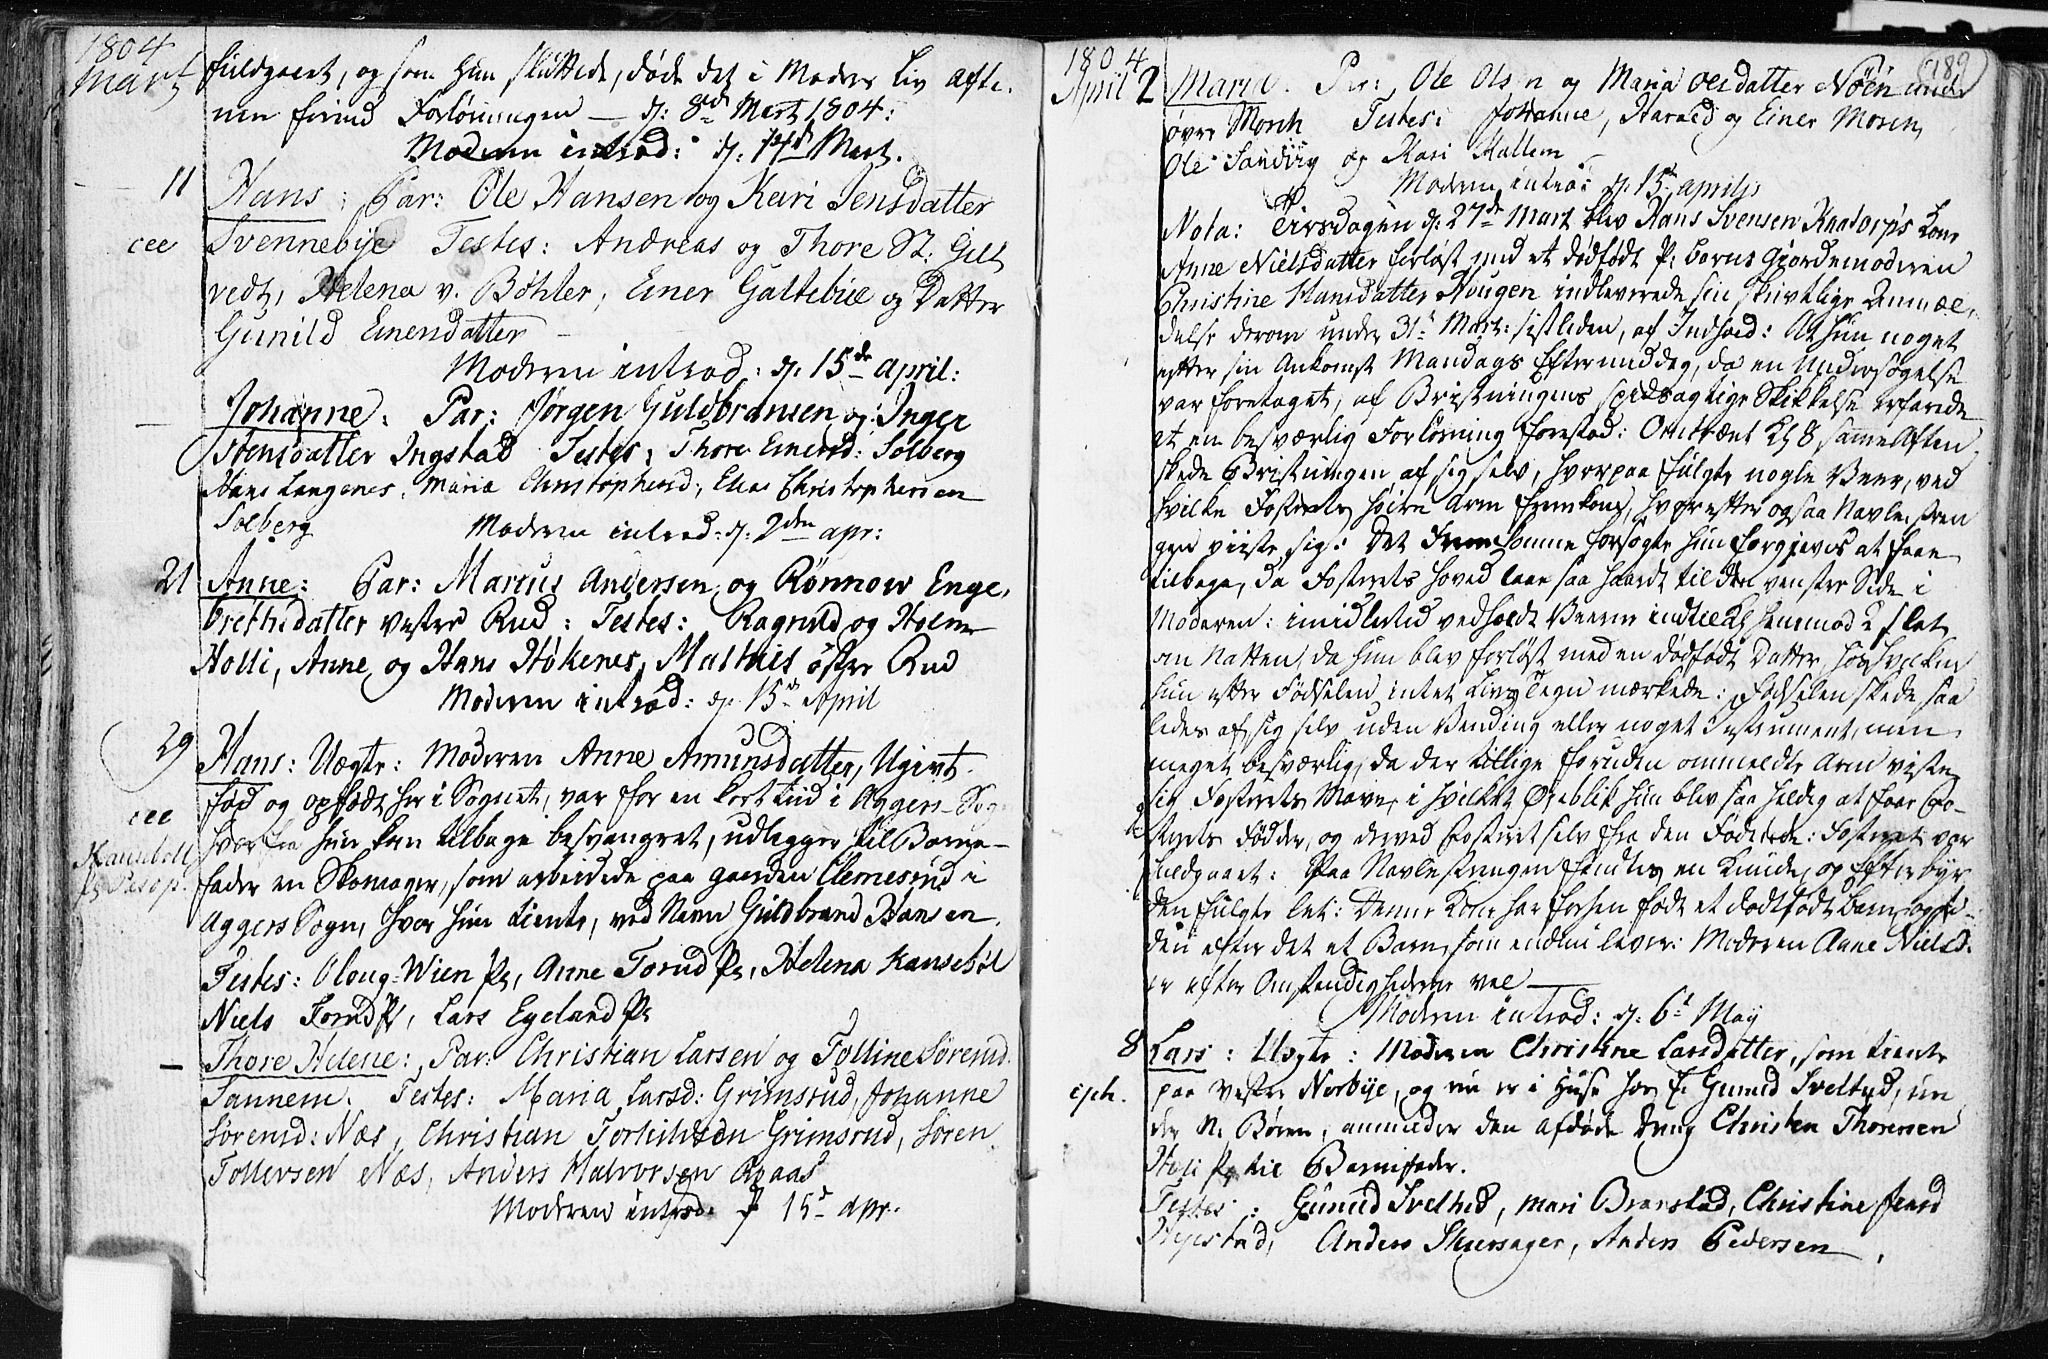 1804
Mart
fuldgaaet, og som hun sluttede, døde det i Moders Liv Afte-
nen forind Forløsningen — d: 8de Mart 1804:
Moderen introd: d: 14d Mart.
11 Hans: Par: Ole Hansen og Kari Jensdatter
cee Svennebye Testes: Andreas og Thore St: Gilt
vedt, Helena v. Bøhler, Einer Galtebüe og Datter
Gunild Einersdatter —
Moderen introd: d. 15de April:
— Johanne: Par: Jørgen Guldbransen og Inger
Stensdatter Ingstad Testes: Thore Einersd: Solberg
Hans Langenes, Maria Christophersd:, Elias Christophersen
Solberg
Moderen introd: d. 2den apr:
21 Anne: Par: Marcus Andersen og Rønnow Enge,
brethsdatter vestre Rud: Testes: Ragnild og Holm
Holli, Anne og Hans Høkenes, Mathis østre Rud
Moderen introd: d. 15d April
29 Hans: Uægte: Moderen Anne Amunsdatter, Ugivt
fød og opfødt her i Sognet, var for en kort tiid i Aggers Sogn
cee hvorfra hun kom tilbage besvangret, udlægger til Barne-
Kansebøll
fader en Skomager, som arbeidede paa gaarden Clemesrud i
Aggers Sogn, hvor hun tiente, ved Navn Guldbrand Hansen
Testes: Oloug Wien Ps, Anne Torud Ps, Helena Kansebøl
Niels Torud Ps, Lars Egeland Ps
— Thore Helene: Par: Christian Larsen og Tolline Sørensd.
Sannem. Testes: Maria Larsd: Grimsrud, Johanne
Sørensd: Næs, Christian Torkildsen Grimsrud, Søren
Tollevsen Næs, Anders Halvorsen Raaas
Moderen introd. d 15d apr.
1804 189
April 2 Maria. Par: Ole Olsen og Maria Olsdatter Nøen under
øvre Moenh Testes: Johanne, Harald og Einer Moen,
Ole Sandvig og Kari Hallem
Moderen introd: d. 15d aprilis
Nota: Tirsdagen d: 27de Mart blev Hans Svensen Knatorps Kone
Anne Nielsdatter forløst med et dødfødt P: barn: Giordemoderen
Christine Hansdatter Hougen indleverede sin skrivtlige Anmæl-
delse derom under 31t Mart: sistleden, af Indhold: At hun noget
efter sin Ankomst Mandags Eftermiddag, da en Undersøgelse
var foretaget, af Bristningens spidsagtige Skikkelse erfarede
at en besværlig Forløsning forestod: Omtrænt Kl 8 samme Aften
skede Bristningen af sig selv, hvorpaa fulgte nogle Veer, ved
hvilke Fosterets høire Arm fremkom, hvorefter ogsaa Navlestren
gen viiste sig: Det Fremkomne forsøgte hun forgieves at faae
tilbage, da Fosterets hoved laae saa haardt til den venstre Side i
Moderen: imidlertid vedholdt Veerne indtil Kl henimod 2 slet
om Natten, da hun blev forløst med en dødfødt Datter, hos hvilken
hun efter Fødselen intet Livs Tegn mærkede: Fødselen skede saa
ledes af sig selv uden Vending eller noget Instrument, men
meget besværlig, da der tillige foruden ommeldte Arm viste
sig Fosterets Mave, i hvilket Øyeblik hun blev saa heldig at faae Fo-
sterets Fødder, og derved Fosteret selv fra den Fødende: Fosteret var
fuldgaaet: Paa Navlestrengen fandtes en Knude, og Efterbyr
den fulgte let: Denne Kone har forhen født et dødfødt barn og si-
den efter det et Barn, som endnu lever: Moderen Anne Nielsd:
er efter Omstændighederne vel —
Moderen introd: d: 6t May
8 Lars: Uægte: Moderen Christine Larsdatter, som tiente
eph. paa vestre Norbye, og nu er i Huse hos E: Gunild Sveltud, un
der N: Børen, anmelder den afdøde Dreng Christen Thoresen
Holi Ps til Barnefader.
Testes: Gunild Svelhed, Mari Branstad, Christine Jensd
Hejestad, Anders Skuersager, Anders Pedersen